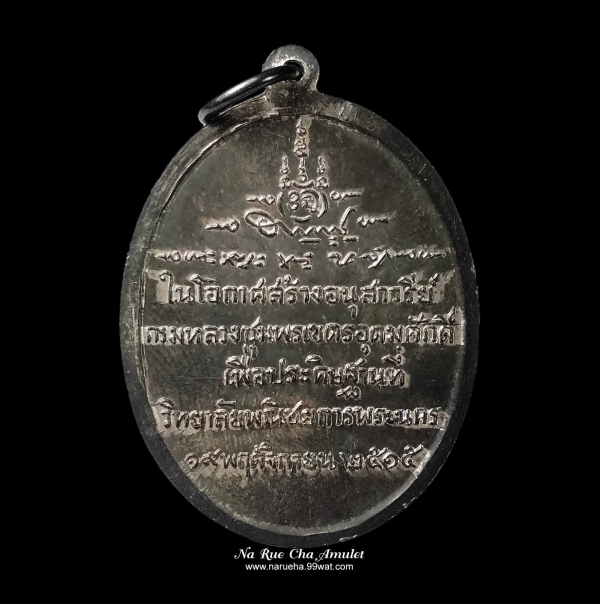 ในโอกาศสร้างอนุสาวรีย์
กรมหลวงชุมพรเขตรอุดมศักดิ์
เพื่อประดิษฐานที่
วิทยาลัยพณิชยการพระนคร
๑๙ พฤศจิกายน ๒๕๑๕
Na Rue Cha Amulet
www.narueha.99wat.com